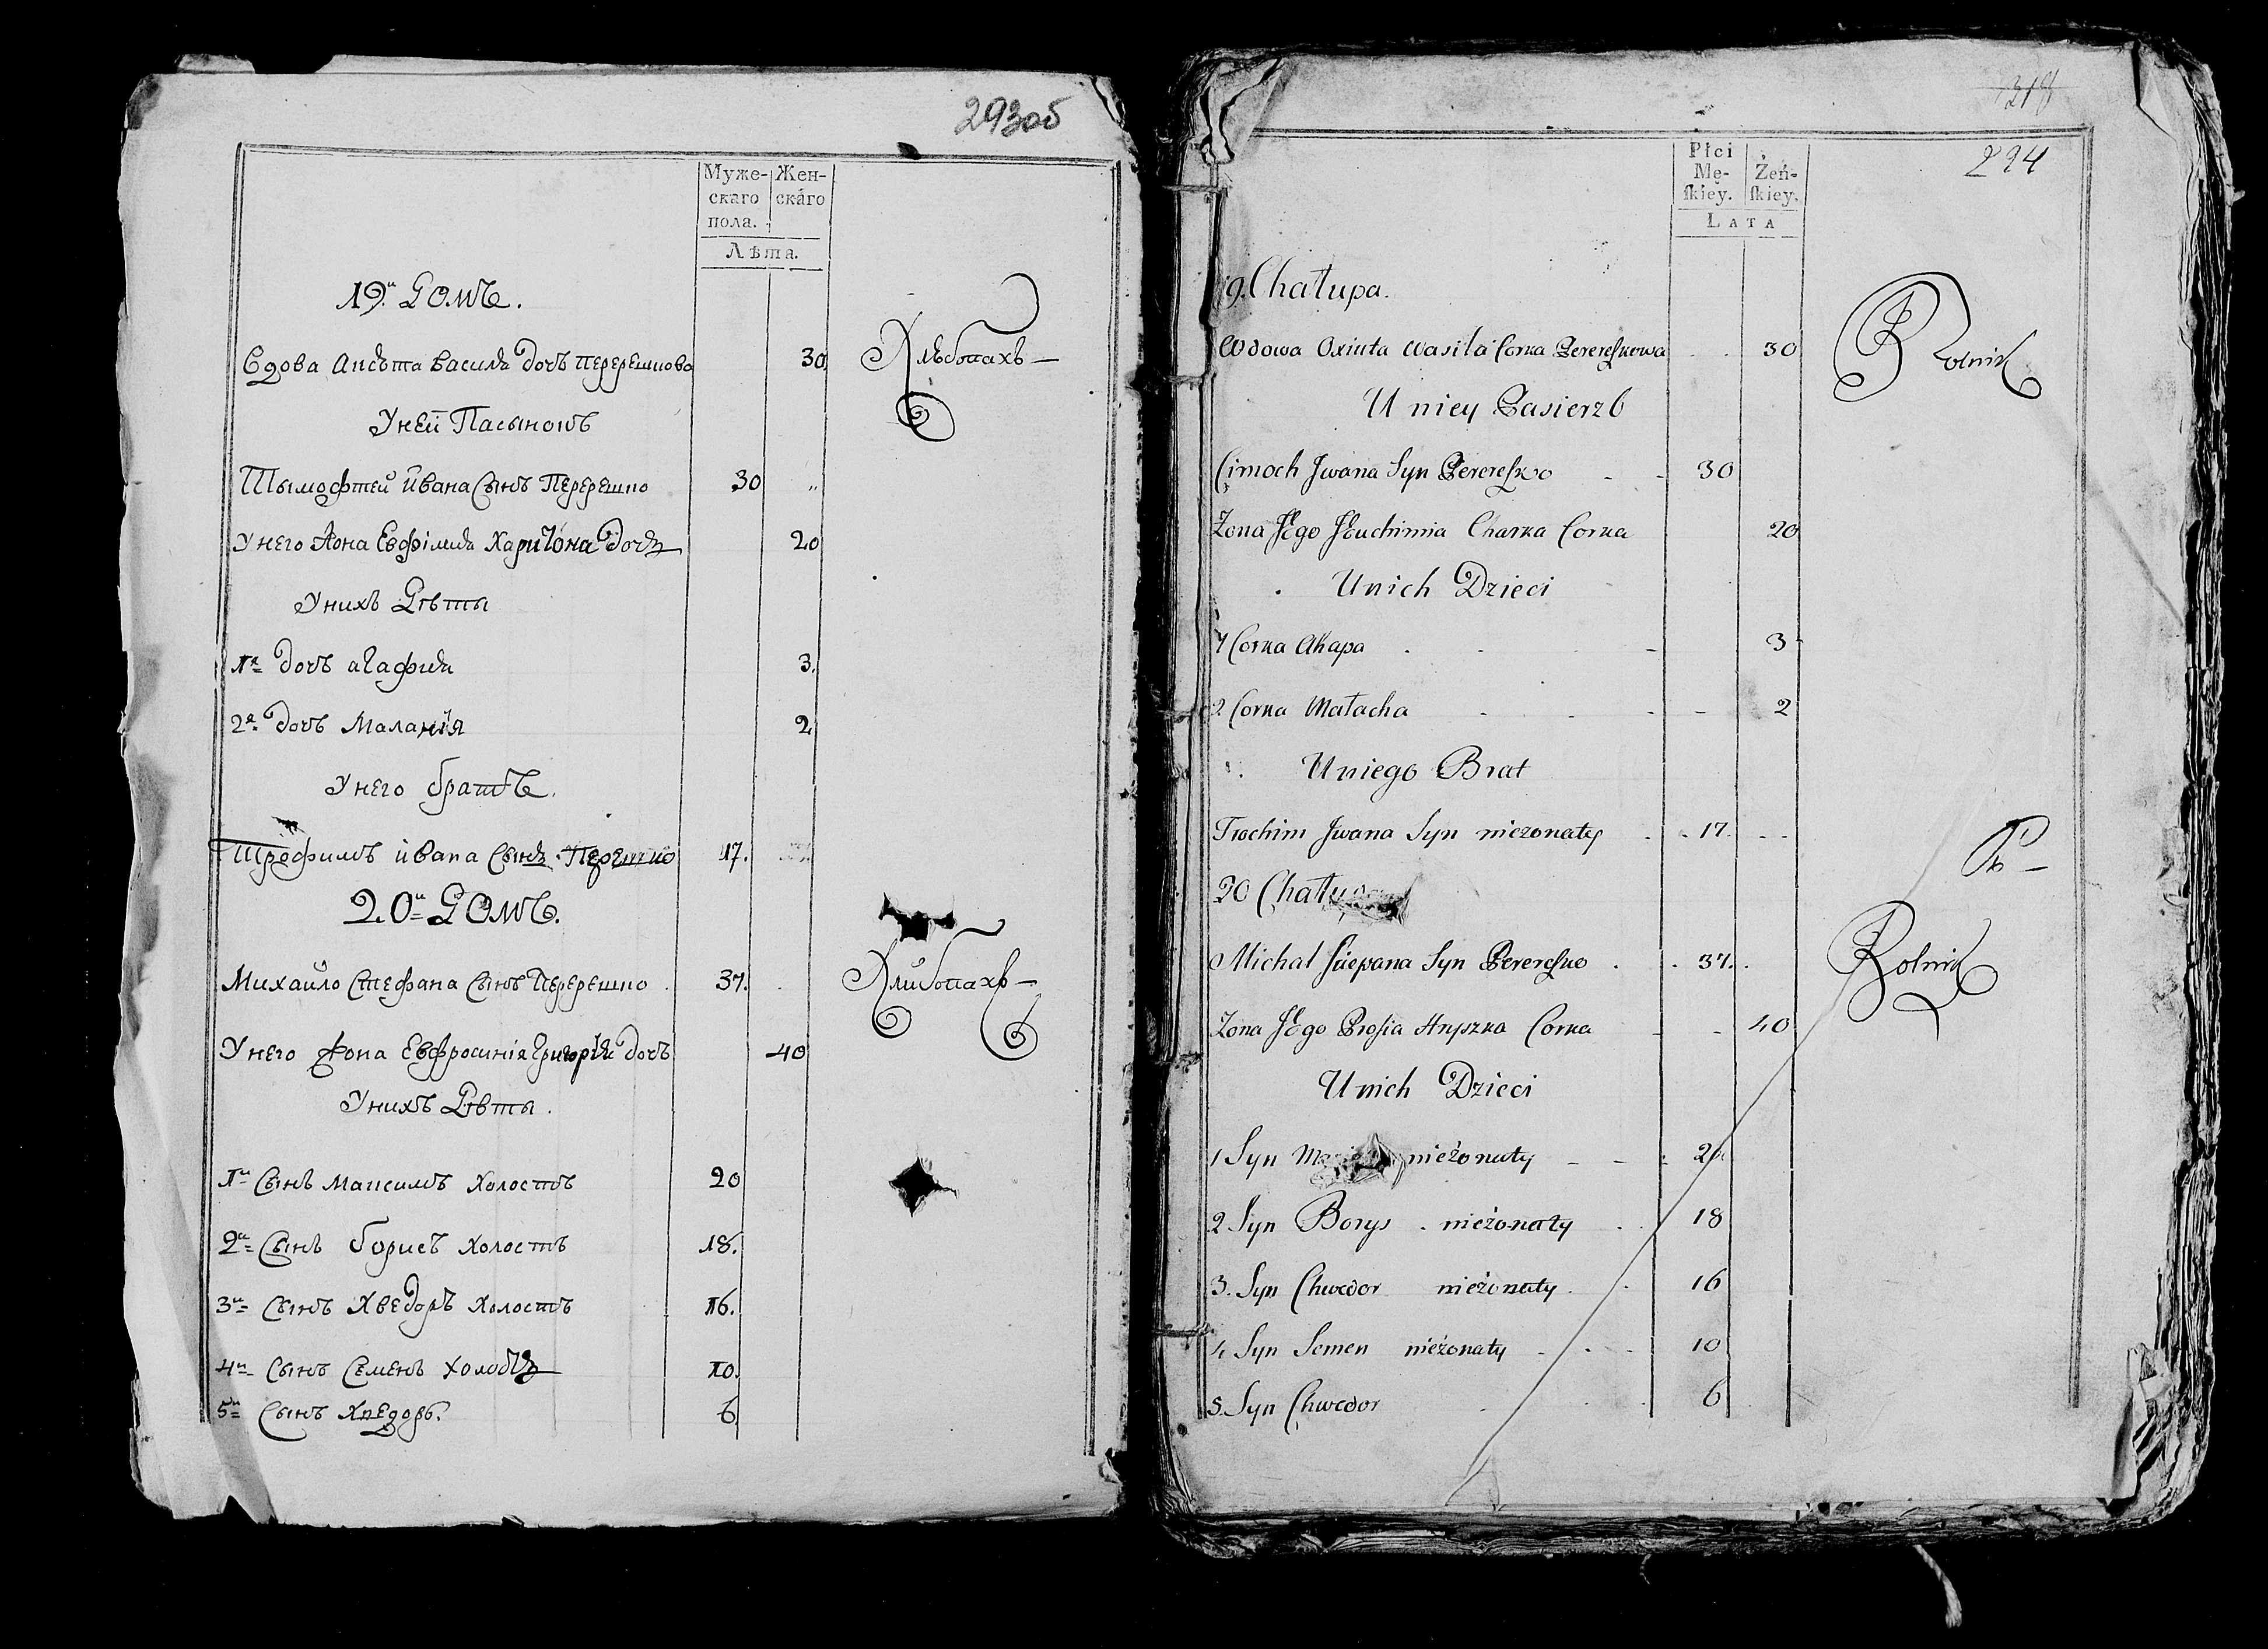 293об
Муже-
скаго
пола.
Жен-
скаго
Лѣта.
19й Домъ.
Вдова Аксѣта Василя дочъ Перерешкова 30 Хлѣбопахъ —
У ней Пасынокъ
Тымофтей ивана Сынъ Перерешко 30 "
У него жона Евфімия Харитона дочъ 20
У нихъ Дѣты
1я дочъ агафия 3.
2я дочъ Маланія 2
У него братъ.
Трофимъ ивана Сынъ Перешко 17.
20й Домъ.
Михайло Стефана Сынъ Перерешко 37. Хлибопахъ —
У него жона Евфросинія Григорія дочъ 40
У нихъ Дѣты.
1й Сынъ Максимъ холостъ 20
2й Сынъ борисъ холостъ 18.
3й Сынъ Хведоръ холостъ 16.
4й Сынъ Семенъ холостъ 10.
5й Сынъ Хведоръ. 6
218
294
Płci
Mę-
ſkiey.
Żeń-
ſkiey.
LATA
19. Chałupa.
Wdowa Oxiuta Wasila Corka Perereszkowa 30 Rolnik
U niey Pasierzb
Cimoch Jwana Syn Perereszko 30
Zona Jego Jeuchimia Charka Corka 20
U nich Dzieci
1 Corka Ahapa 3
2 Corka Małacha 2
U niego Brat
Trochim Jwana Syn niezonaty 17
20 Chałupa
Michał Sciepana Syn Perereszko 37. Rolnik
Zona Jego Prosia Hryszka Corka 40
U nich Dzieci
1 Syn nieżonaty 20
2 Syn Borys nieżonaty 18
3. Syn Chwedor nieżonaty 16
4 Syn Semen nieżonaty 10
5. Syn Chwedor 6